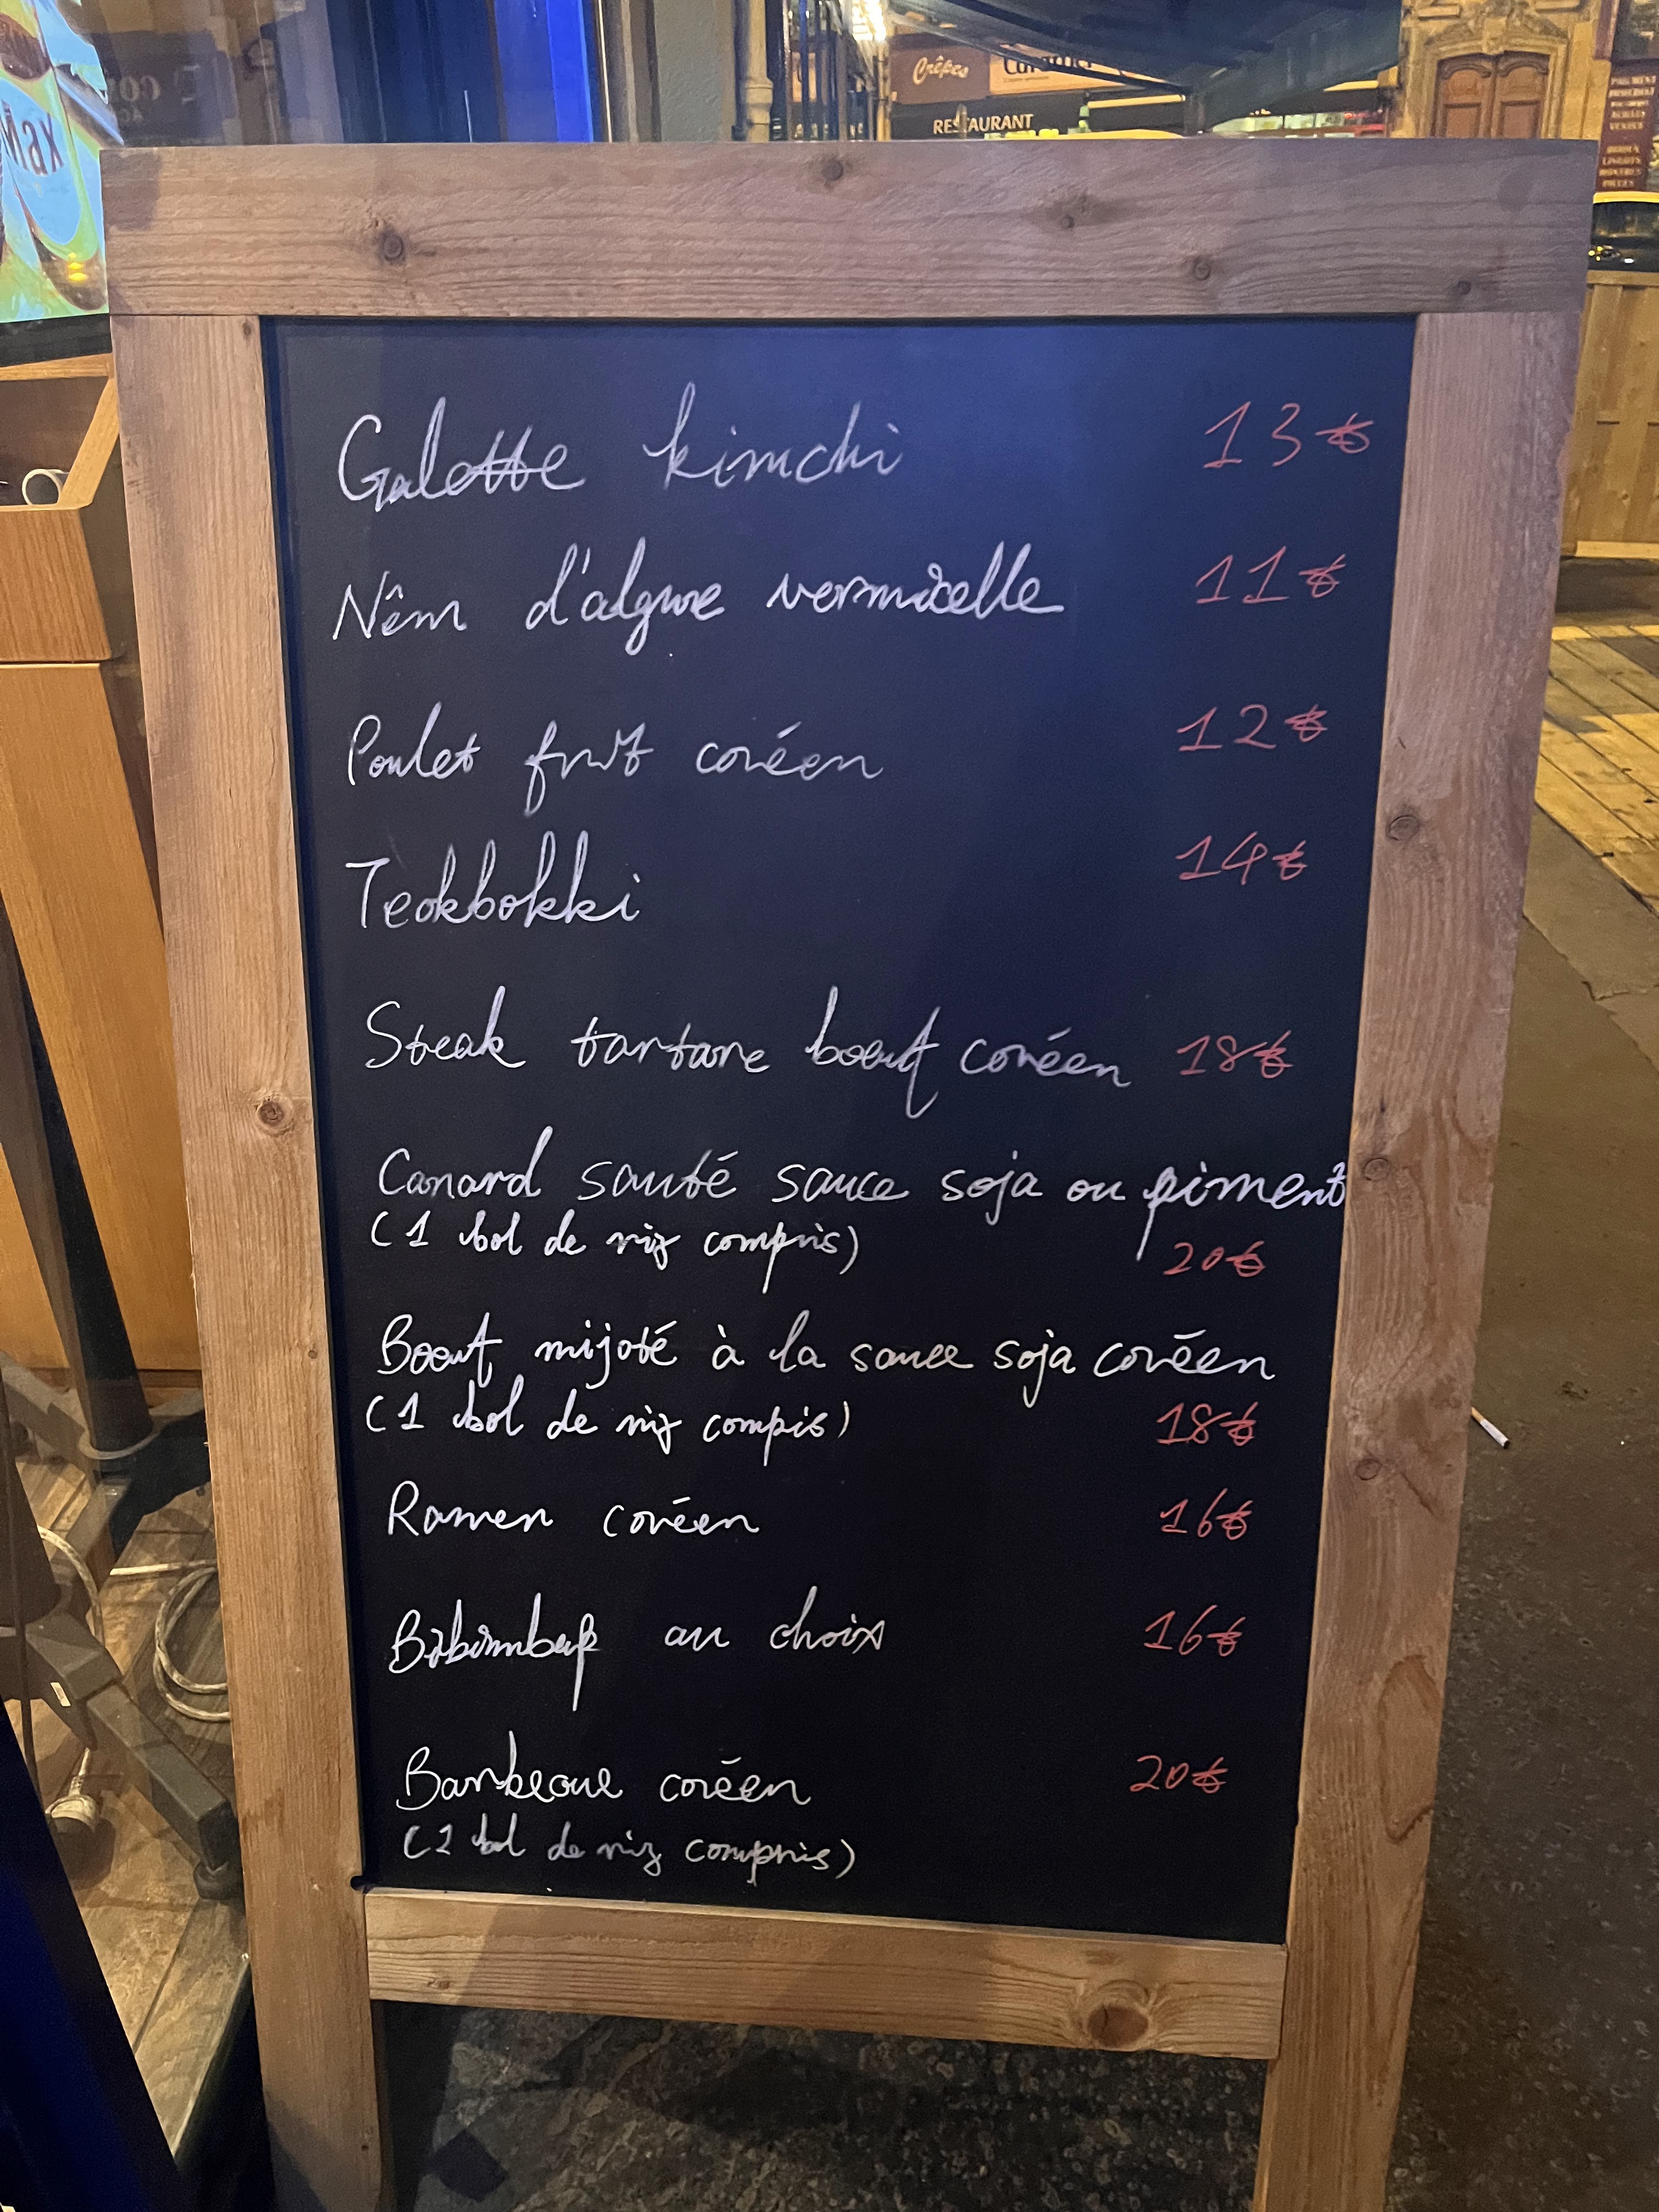 Max
Crêpes
RESTAURANT
Galette kimchi 13€
Nêm d'algue vermicelle 11€
Poulet frit coréen 12€
Teokbokki 14€
Steak tartare boeuf coréen 18€
Canard sauté sauce soja ou piment
(1 bol de riz compris) 20€
Boeuf mijoté à la sauce soja coréen
(1 bol de riz compis) 18€
Ramen coréen 16€
Bibimbap au choix 16€
Barbecue coréen 20€
(1 bol de riz compris)